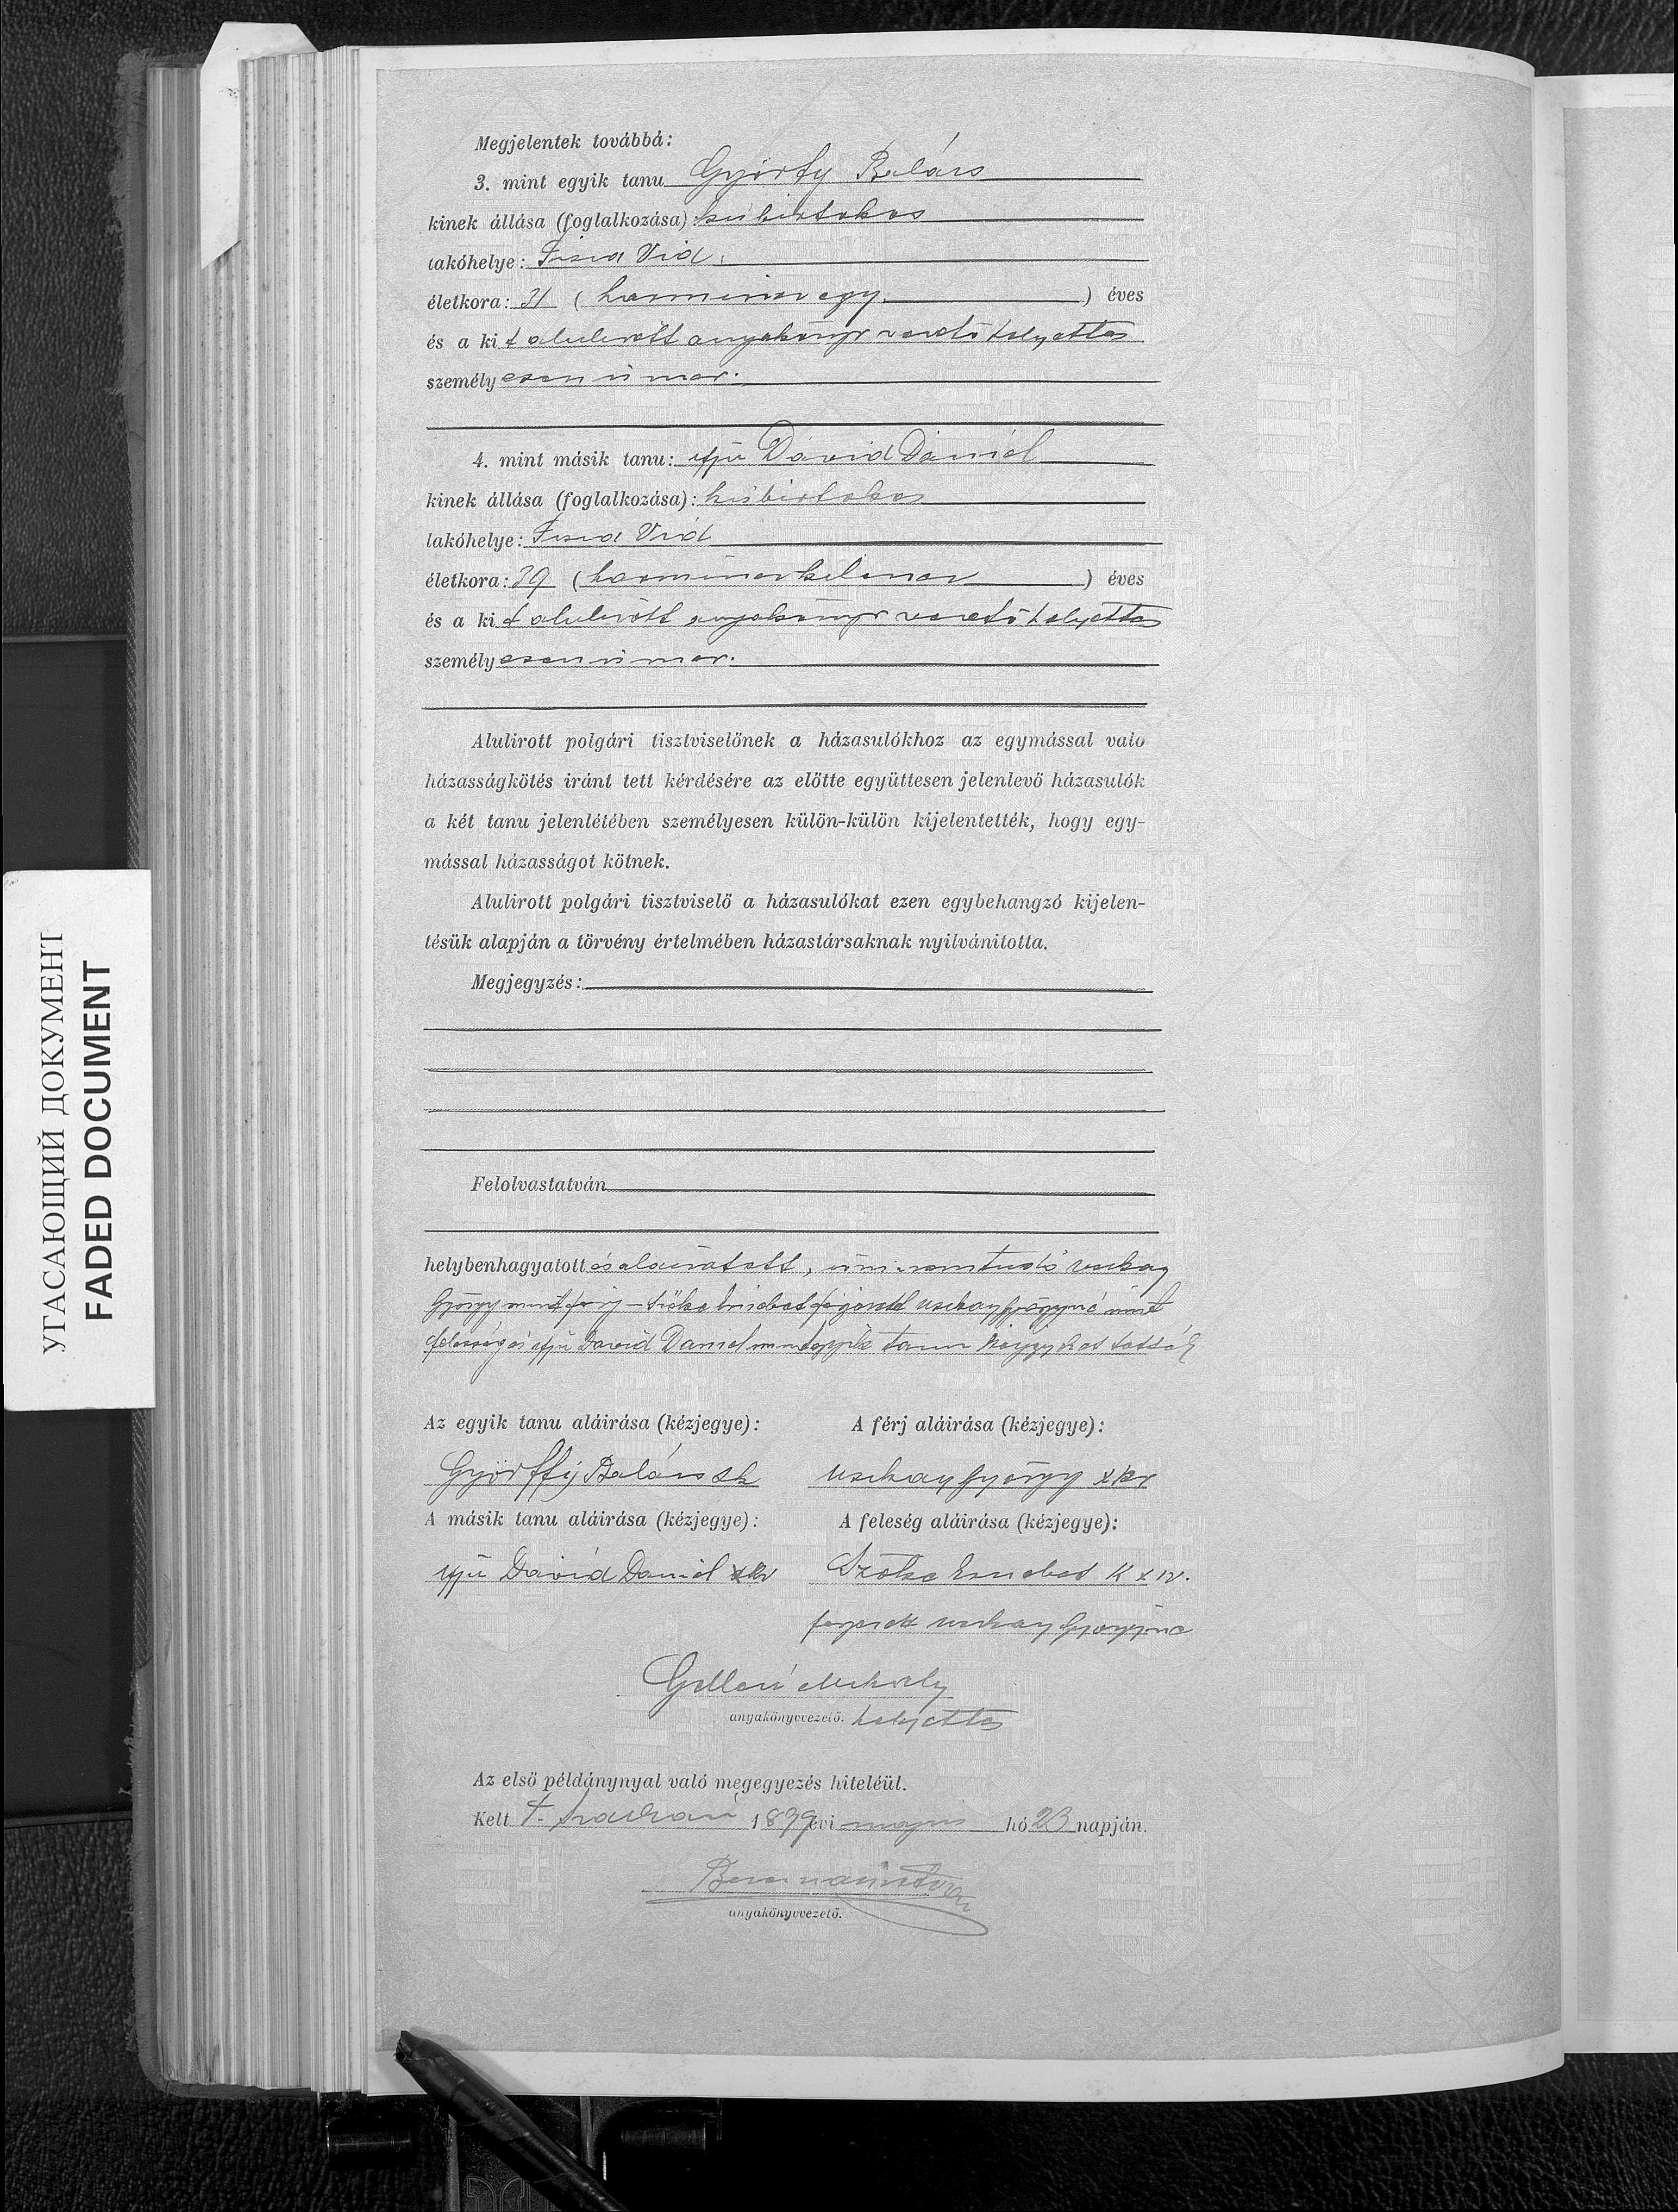 Megjelentek továbbá:
3. mint egyik tanu Györfy Balázs
kinek állása (foglalkozása): kisbirtokos
lakóhelye: Tisza Vid.
életkora: 31 (harmincz egy) éves
és a ki t alulirott anyakönyv vezető helyettes
személy
4. mint másik tanu: ifjú Dávid Dániel
kinek állása (foglalkozása): kisbirtokos
lakóhelye: Tisza Vid
életkora: 39 (harminczkilencz) éves
és a ki t alulirott anyakönyv vezető helyettes
személy
Alulirott polgári tisztviselőnek a házasulókhoz az egymással való
házasságkötés iránt tett kérdésére az előtte együttesen jelenlevő házasulók
a két tanu jelenlétében személyesen külön-külön kijelentették, hogy egy-
mással házasságot kötnek.
Alulirott polgári tisztviselő a házasulókat ezen egybehangzó kijelen-
tésük alapján a törvény értelmében házastársaknak nyilvánitotta.
Megjegyzés:
Felolvastatván
helybenhagyatott és aláiratott, irni nem tudó
György mint férj mint
feleség és ifjú Dávid Dániel mint egyik tanu kézjegyüket tették
Az egyik tanu aláirása (kézjegye): A férj aláirása (kézjegye):
Györffy Balázs sk György x kv
A másik tanu aláirása (kézjegye): A feleség aláirása (kézjegye):
ifjú Dávid Dániel x kv Szőke Erzsébet k x v.
férjezett Györgyné
Gelléri Mihály
anyakönyvvezető. helyettes
Az első példánynyal való megegyezés hiteléül.
Kelt 1899 évi május hó 23 napján.
anyakönyvvezető.
УГАСАЮЩИЙ ДОКУМЕНТ
FADED DOCUMENT